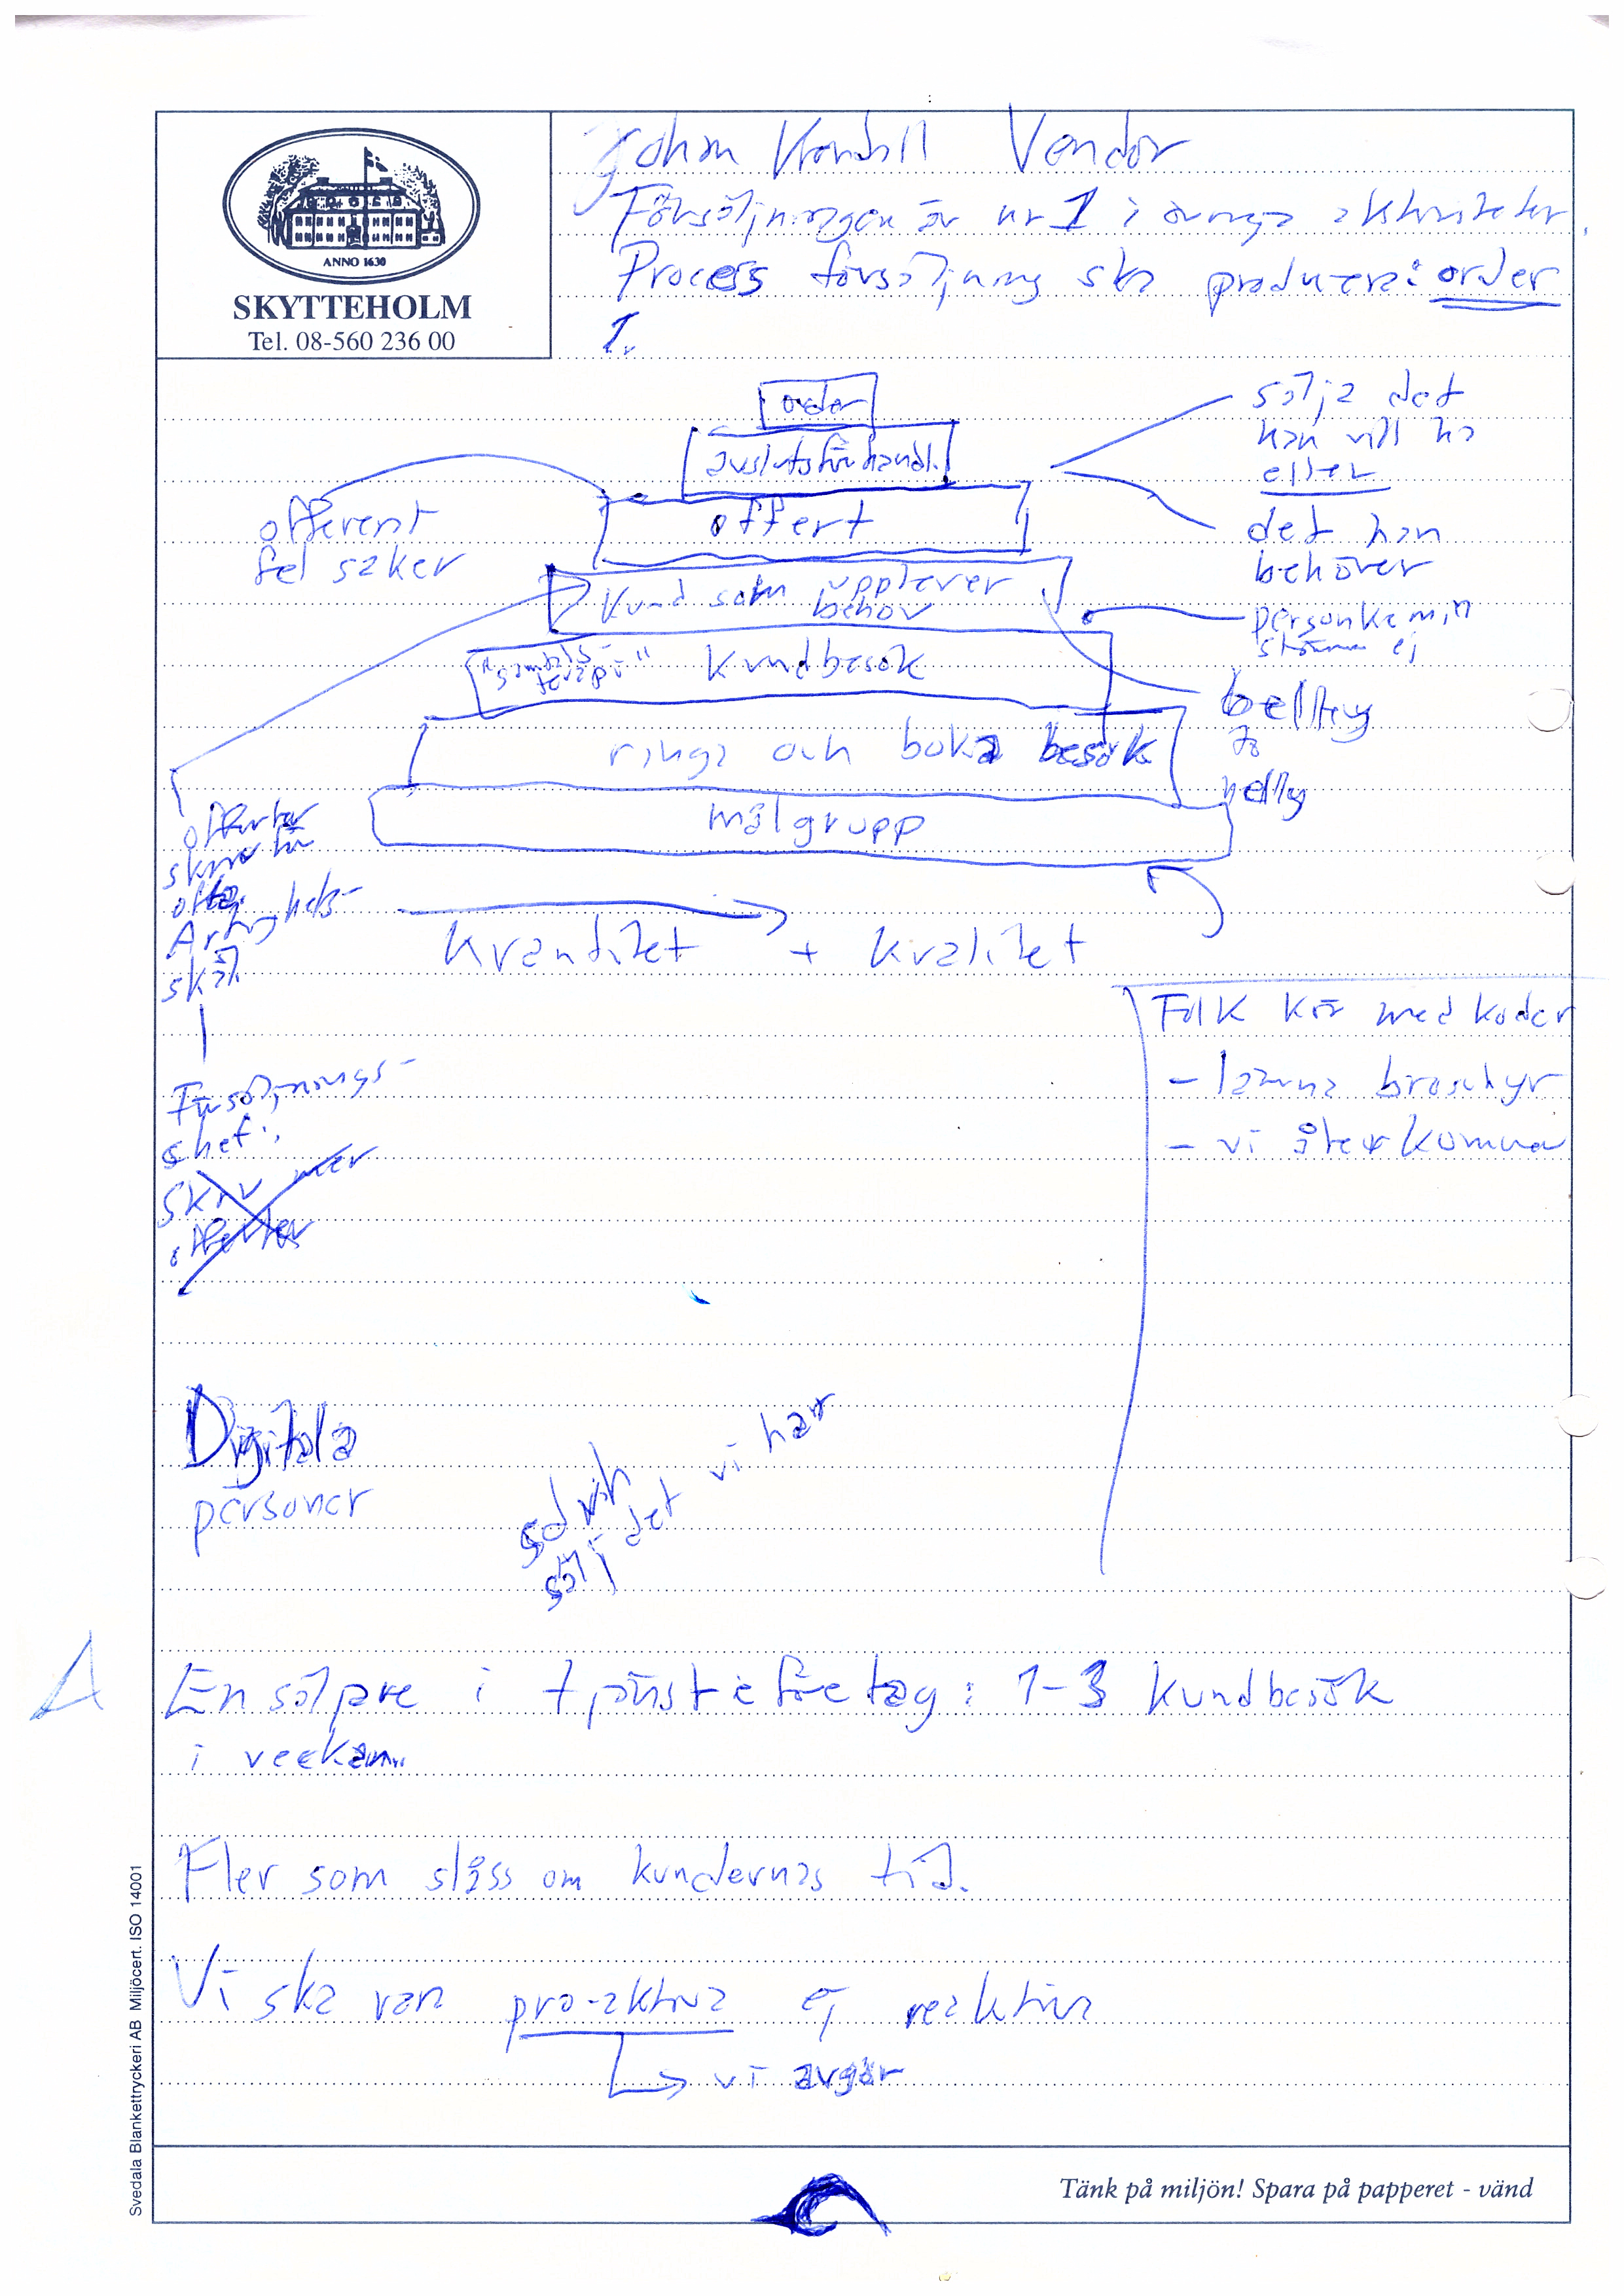 ANNO 1630
SKYTTEHOLM
Tel. 08-560 236 00
Johan Vendor
Försäljningen är nr 1 i övriga aktiviteter.
Process försäljning ska producera: order
1.
order
avslutsförhandl.
offert
Kund som upplever
behov
"samtals-
terapi"
Kundbesök
ringa och boka besök
målgrupp
Kvantitet + Kvalitet
sälja det
han vill ha
eller
det han
behöver
personkemin
ej
to
offererat
fel saker
offerter
skrivs för
ofta.
Artighets-
skäl
Försäljnings-
chef:
Skriv mer
offerter
Folk kör med koder
- lämna broschyr
- vi återkommer
Digitala
personer
sälj det vi har
En säljare i tjänsteföretag: 1-3 kundbesök
i veckan.
Fler som slåss om kundernas tid.
Vi ska vara pro-aktiva ej reaktiva
vi avgör
Tänk på miljön! Spara på papperet - vänd
Svedala Blankettryckeri AB Miljöcert. ISO 14001